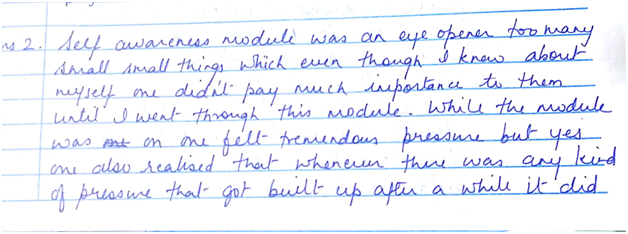 ns 2. Self awareness module was an eye opener too many
small small things which even though I knew about
myself one didn't pay much importance to them
until I went through this module. While the module
was on one felt tremendous pressure but yes
one also realised that whenever there was any kind
of pressure that got built up after a while it did